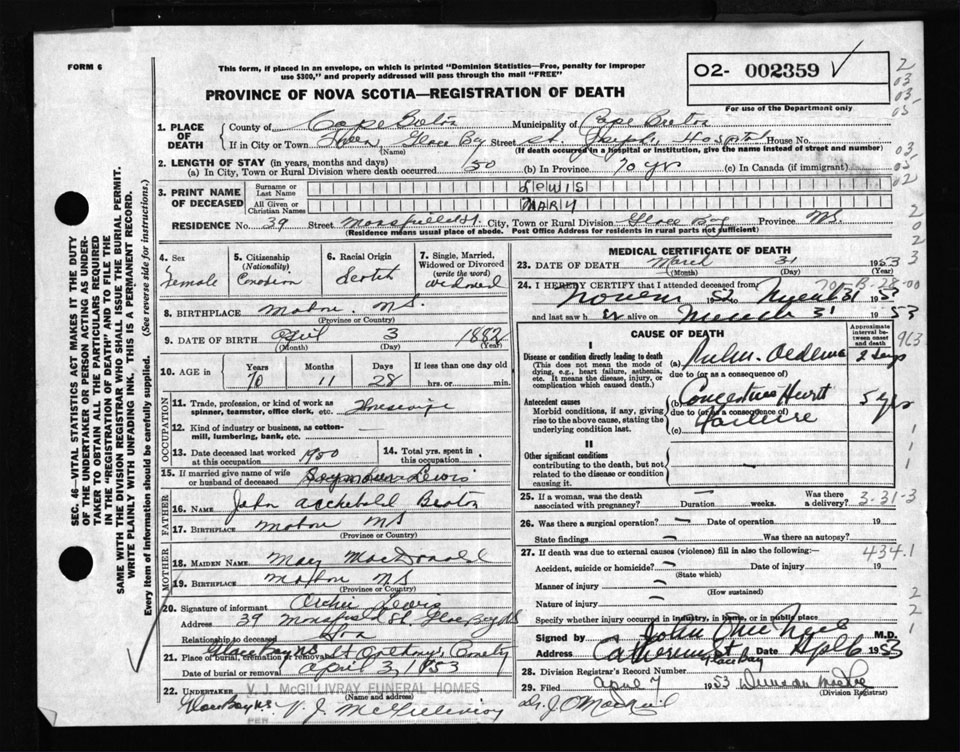 FORM 6
This form, if placed in an envelope, on which is printed "Dominion Statistics—Free, penalty for improper
use $300," and properly addressed will pass through the mail "FREE"
O2- 002359
PROVINCE OF NOVA SCOTIA—REGISTRATION OF DEATH
For use of the Department only
1. PLACE OF DEATH
County of Cape Breton Municipality of Cape Breton
If in City or Town Glace Bay Street St. Josephs Hospital House No.
(Name) (If death occurred in hospital or institution, give the name instead of street and number)
2. LENGTH OF STAY (in years, months and days)
(a) In City, Town or Rural Division where death occurred 50 (b) In Province 70 yr (c) In Canada (if immigrant)
3. PRINT NAME OF DECEASED
Surname or Last Name LEWIS
All Given or Christian Names MARY
RESIDENCE No. 39 Street City, Town or Rural Division Glace Bay Province N.S.
(Residence means usual place of abode. Post Office Address for residents in rural parts not sufficient)
4. Sex Female
5. Citizenship (Nationality) Canadian
6. Racial Origin Scotch
7. Single, Married, Widowed or Divorced (write the word) widowed
8. BIRTHPLACE Mabou N.S.
(Province or Country)
9. DATE OF BIRTH April 3 1882
(Month) (Day) (Year)
10. AGE in Years Months Days If less than one day old
70 11 28 hrs. or min.
OCCUPATION
11. Trade, profession, or kind of work as spinner, teamster, office clerk, etc. Housewife
12. Kind of industry or business, as cotton-mill, lumbering, bank, etc.
13. Date deceased last worked at this occupation 1950
14. Total yrs. spent in this occupation
15. If married give name of wife or husband of deceased Lewis
FATHER
16. NAME John Archibald Beaton
17. BIRTHPLACE Mabou NS
(Province or Country)
MOTHER
18. MAIDEN NAME Mary MacDonald
19. BIRTHPLACE Mabou NS
(Province or Country)
20. Signature of informant Archie Lewis
Address 39 St. Glace Bay NS
Relationship to deceased Son
21. Place of burial, cremation or removal Glace Bay NS St Anthony's Cemetery
Date of burial or removal April 3, 1953
22. UNDERTAKER V. J. McGILLIVRAY FUNERAL HOMES
Glace Bay N.S. PER V. J. McGillivray
MEDICAL CERTIFICATE OF DEATH
23. DATE OF DEATH March 31 1953
(Month) (Day) (Year)
24. I HEREBY CERTIFY that I attended deceased from
1952 to March 31 1953
and last saw h er alive on March 31 1953
70-B-28-00
CAUSE OF DEATH
Approximate interval between onset and death
I
Disease or condition directly leading to death
(This does not mean the mode of dying, e.g., heart failure, asthenia, etc. It means the disease, injury, or complication which caused death.)
(a) Pulm. Oedema 2 days
due to (or as a consequence of)
Antecedent causes
Morbid conditions, if any, giving rise to the above cause, stating the underlying condition last.
(b) Congestive Heart 5 yrs
due to (or as a consequence of)
(c) Failure
II
Other significant conditions
contributing to the death, but not related to the disease or condition causing it.
25. If a woman, was the death associated with pregnancy? Duration weeks. Was there a delivery? 3-31-3
26. Was there a surgical operation? Date of operation 19
State findings Was there an autopsy?
27. If death was due to external causes (violence) fill in also the following:—
434.1
Accident, suicide or homicide? Date of injury 19
(State which)
Manner of injury
(How sustained)
Nature of injury
Specify whether injury occurred in industry, in home, or in public place
Signed by John M.D.
Address Catherine St Glace Bay Date Apl 6 1953
28. Division Registrar's Record Number
29. Filed April 7 1953 Duncan
(Division Registrar)
SEC. 46—VITAL STATISTICS ACT MAKES IT THE DUTY
OF THE UNDERTAKER OR PERSON ACTING AS UNDER-
TAKER TO OBTAIN ALL THE PARTICULARS REQUIRED
IN THE "REGISTRATION OF DEATH" AND TO FILE THE
SAME WITH THE DIVISION REGISTRAR WHO SHALL ISSUE THE BURIAL PERMIT.
WRITE PLAINLY WITH UNFADING INK. THIS IS A PERMANENT RECORD.
Every item of information should be carefully supplied. (See reverse side for instructions.)